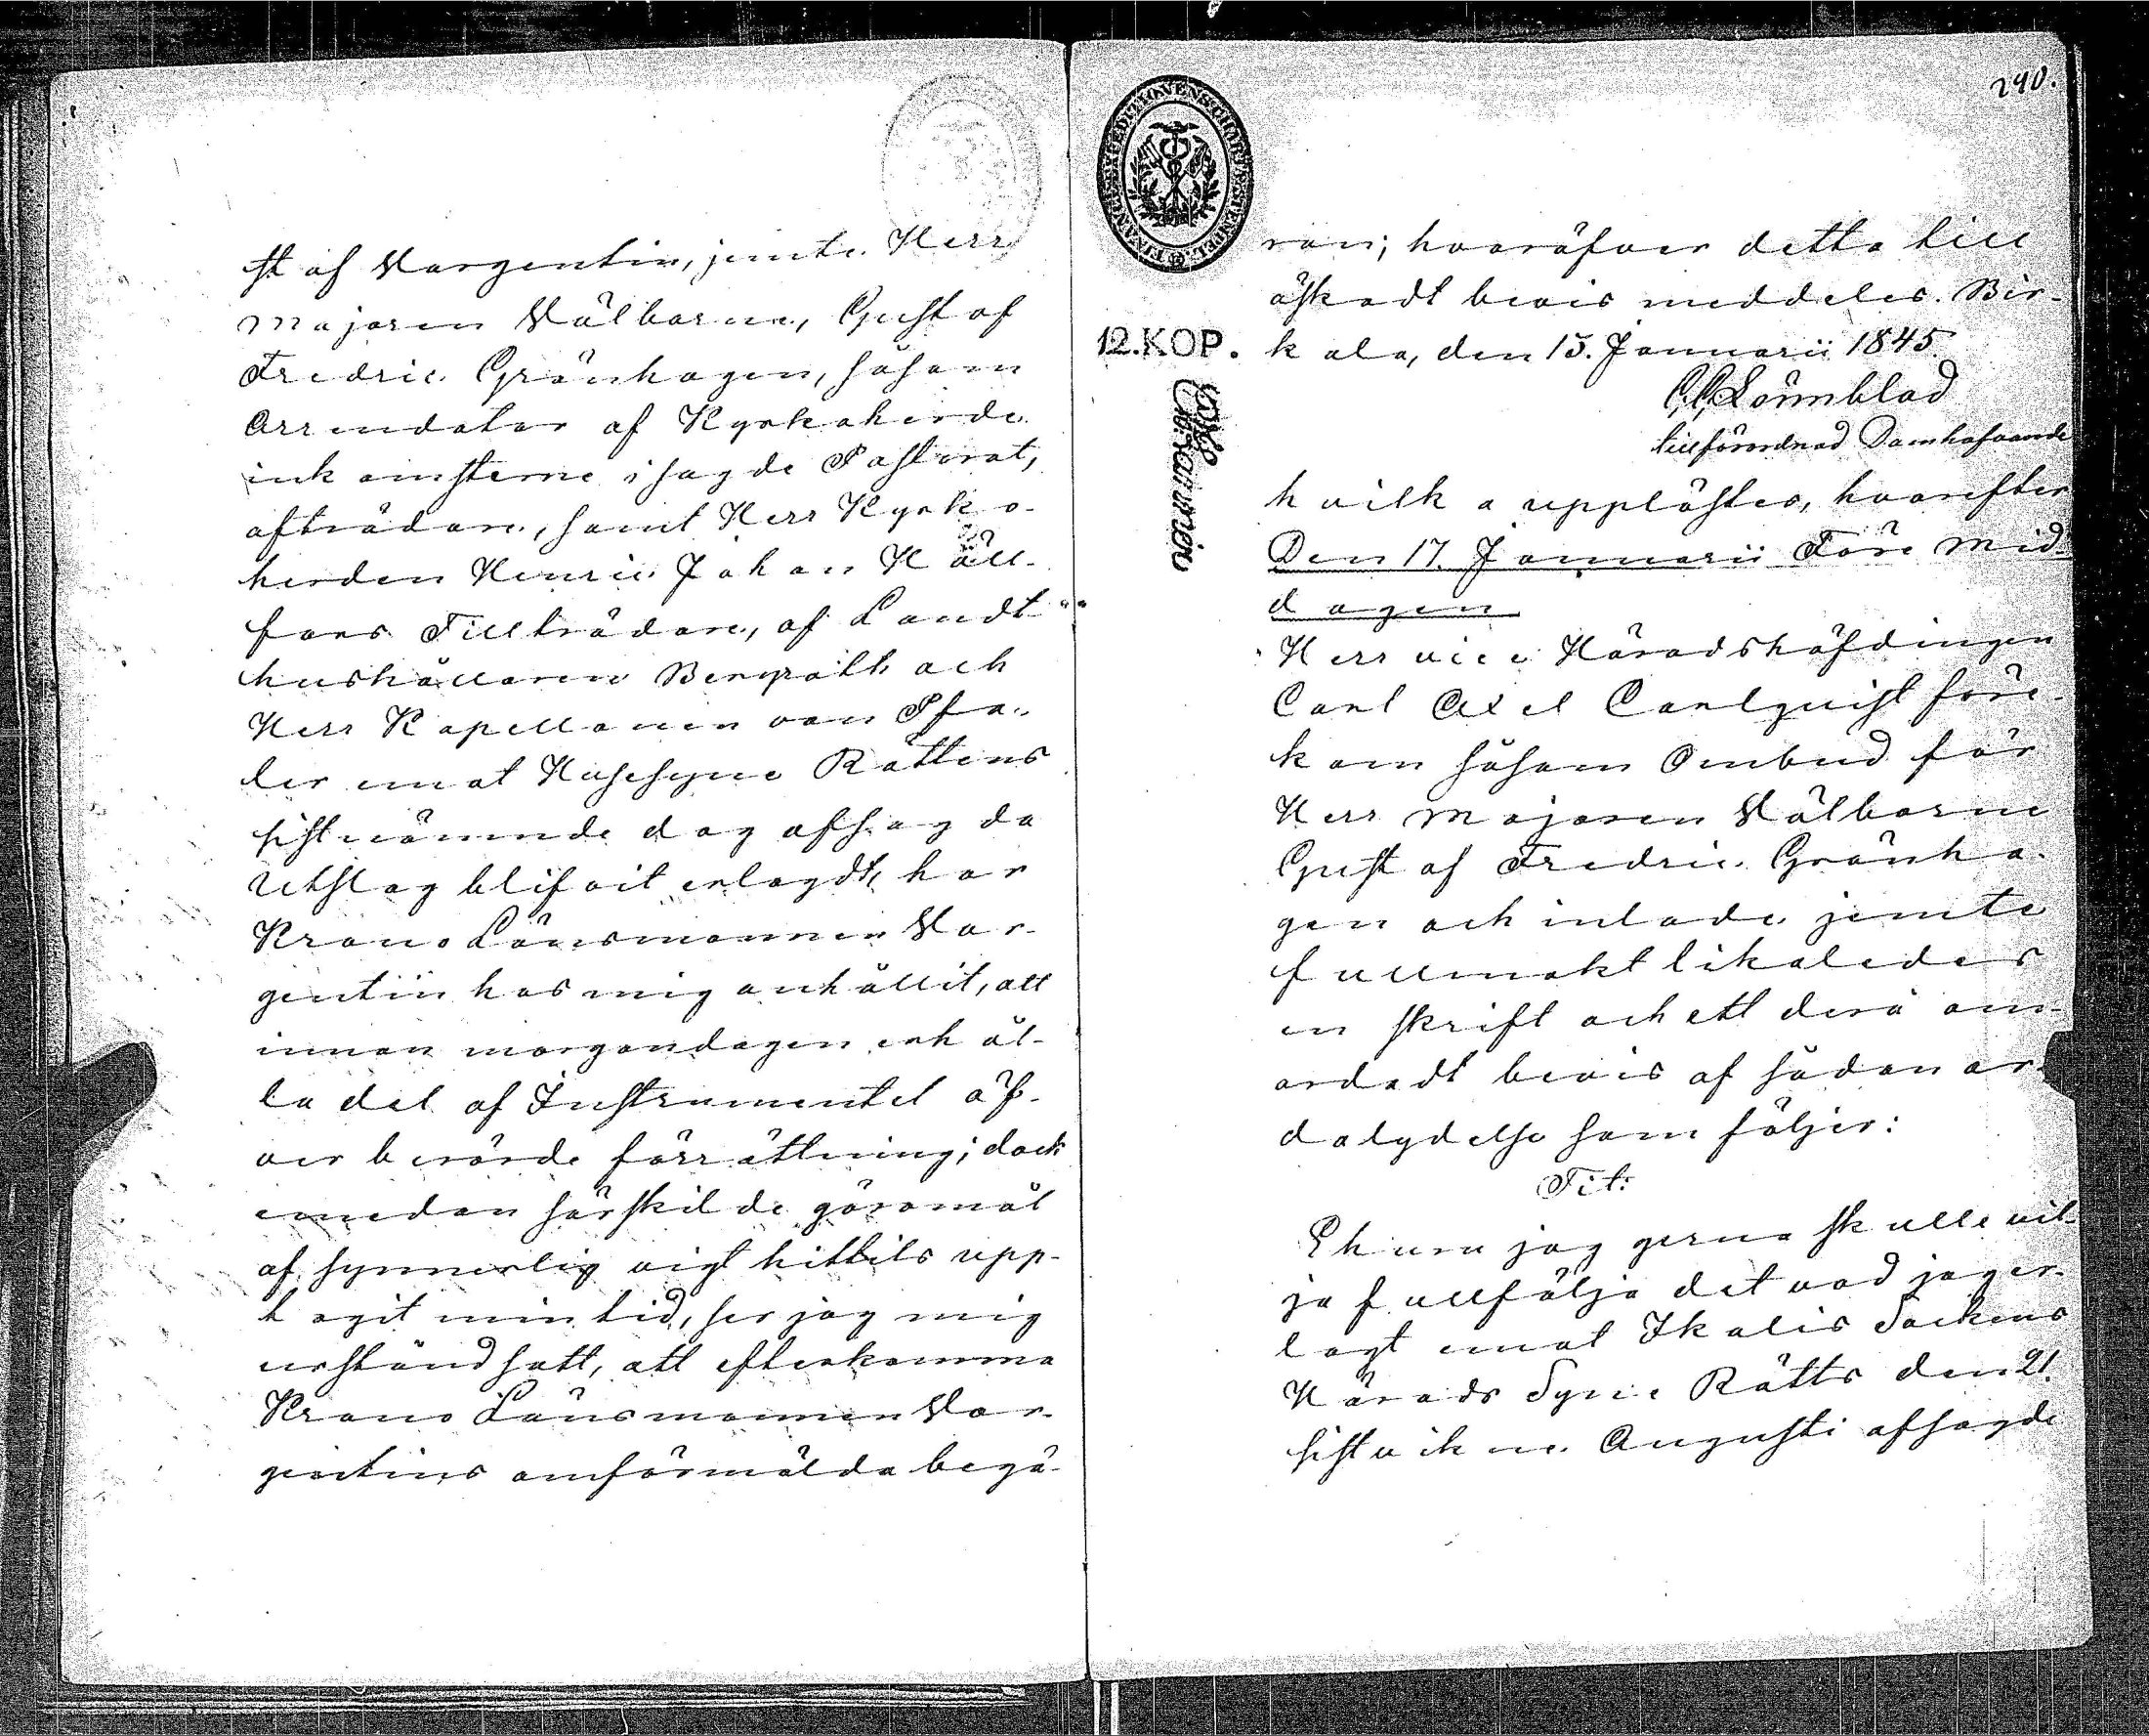 st af Wargentin, jemte Herr
Majoren Välborne, Gustaf
Fredric Grönhagen, såsom
Arrendator af Kyrkoherde
inkomsterne i sagde Pastorat,
afträdare, samt Herr Kyrko-
herden Henric Johan Häll-
fors Tillträdare, af Landt
hushållaren Bergroth och
Herr Kapellanen von Pfa-
ler emot Husesyne Rättens
sistnämnde dag afsagda
Utslag blifvit erlagdt, har
Krono Länsmannen War-
gentin hos mig anhållit, att
innan morgondagen erhål-
la del af Instrumentet öf-
ver berörde förrättning; dock
emedan särskilde göromål
af synnerlig vigt hittils upp-
tagit min tid, ser jag mig
urståndsatt, att efterkomma
Krono Länsmannen War-
gentins omförmälda begä-
240.
ran; hvaröfver detta till
äskadt bevis meddeles. Bir-
12. KOP. kala, den 15. Januarii 1845.
Lönnblad
tillförordnad Domhafvande
hvilka upplästes, hvarefter
Den 17. Januarii Före Mid-
dagen
Herr vice Häradshöfdingen
Carl Axel Carlquist före-
kom såsom Ombud för
Herr Majoren Välborne
Gustaf Fredric Grönha-
gen och inlade jemte
fullmakt likaledes
en skrift och ett derå om-
ordadt bevis af sådan or-
dalydelse som följer:
Tit:
Ehuru jag gerna skulle vil-
ja fullfölja det vad jag er-
lagt emot Ikalis Sockens
Härads Syne Rätts den 21.
sistvikne Augusti afsagde